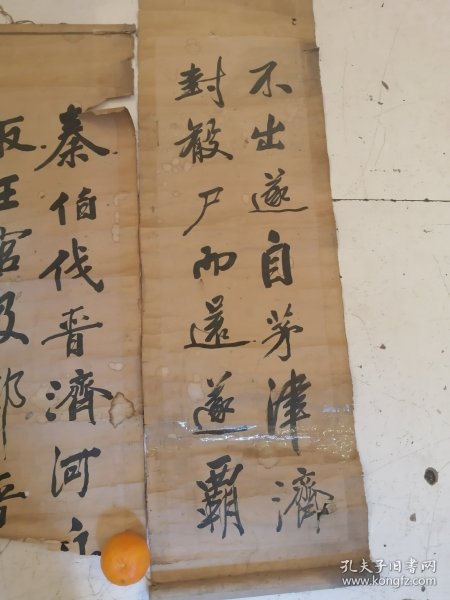 秦伯伐晉濟河
取王官及郊晉
不出遂自茅津濟
封殽尸而還遂霸
孔夫子旧书网
www.kongfz.com